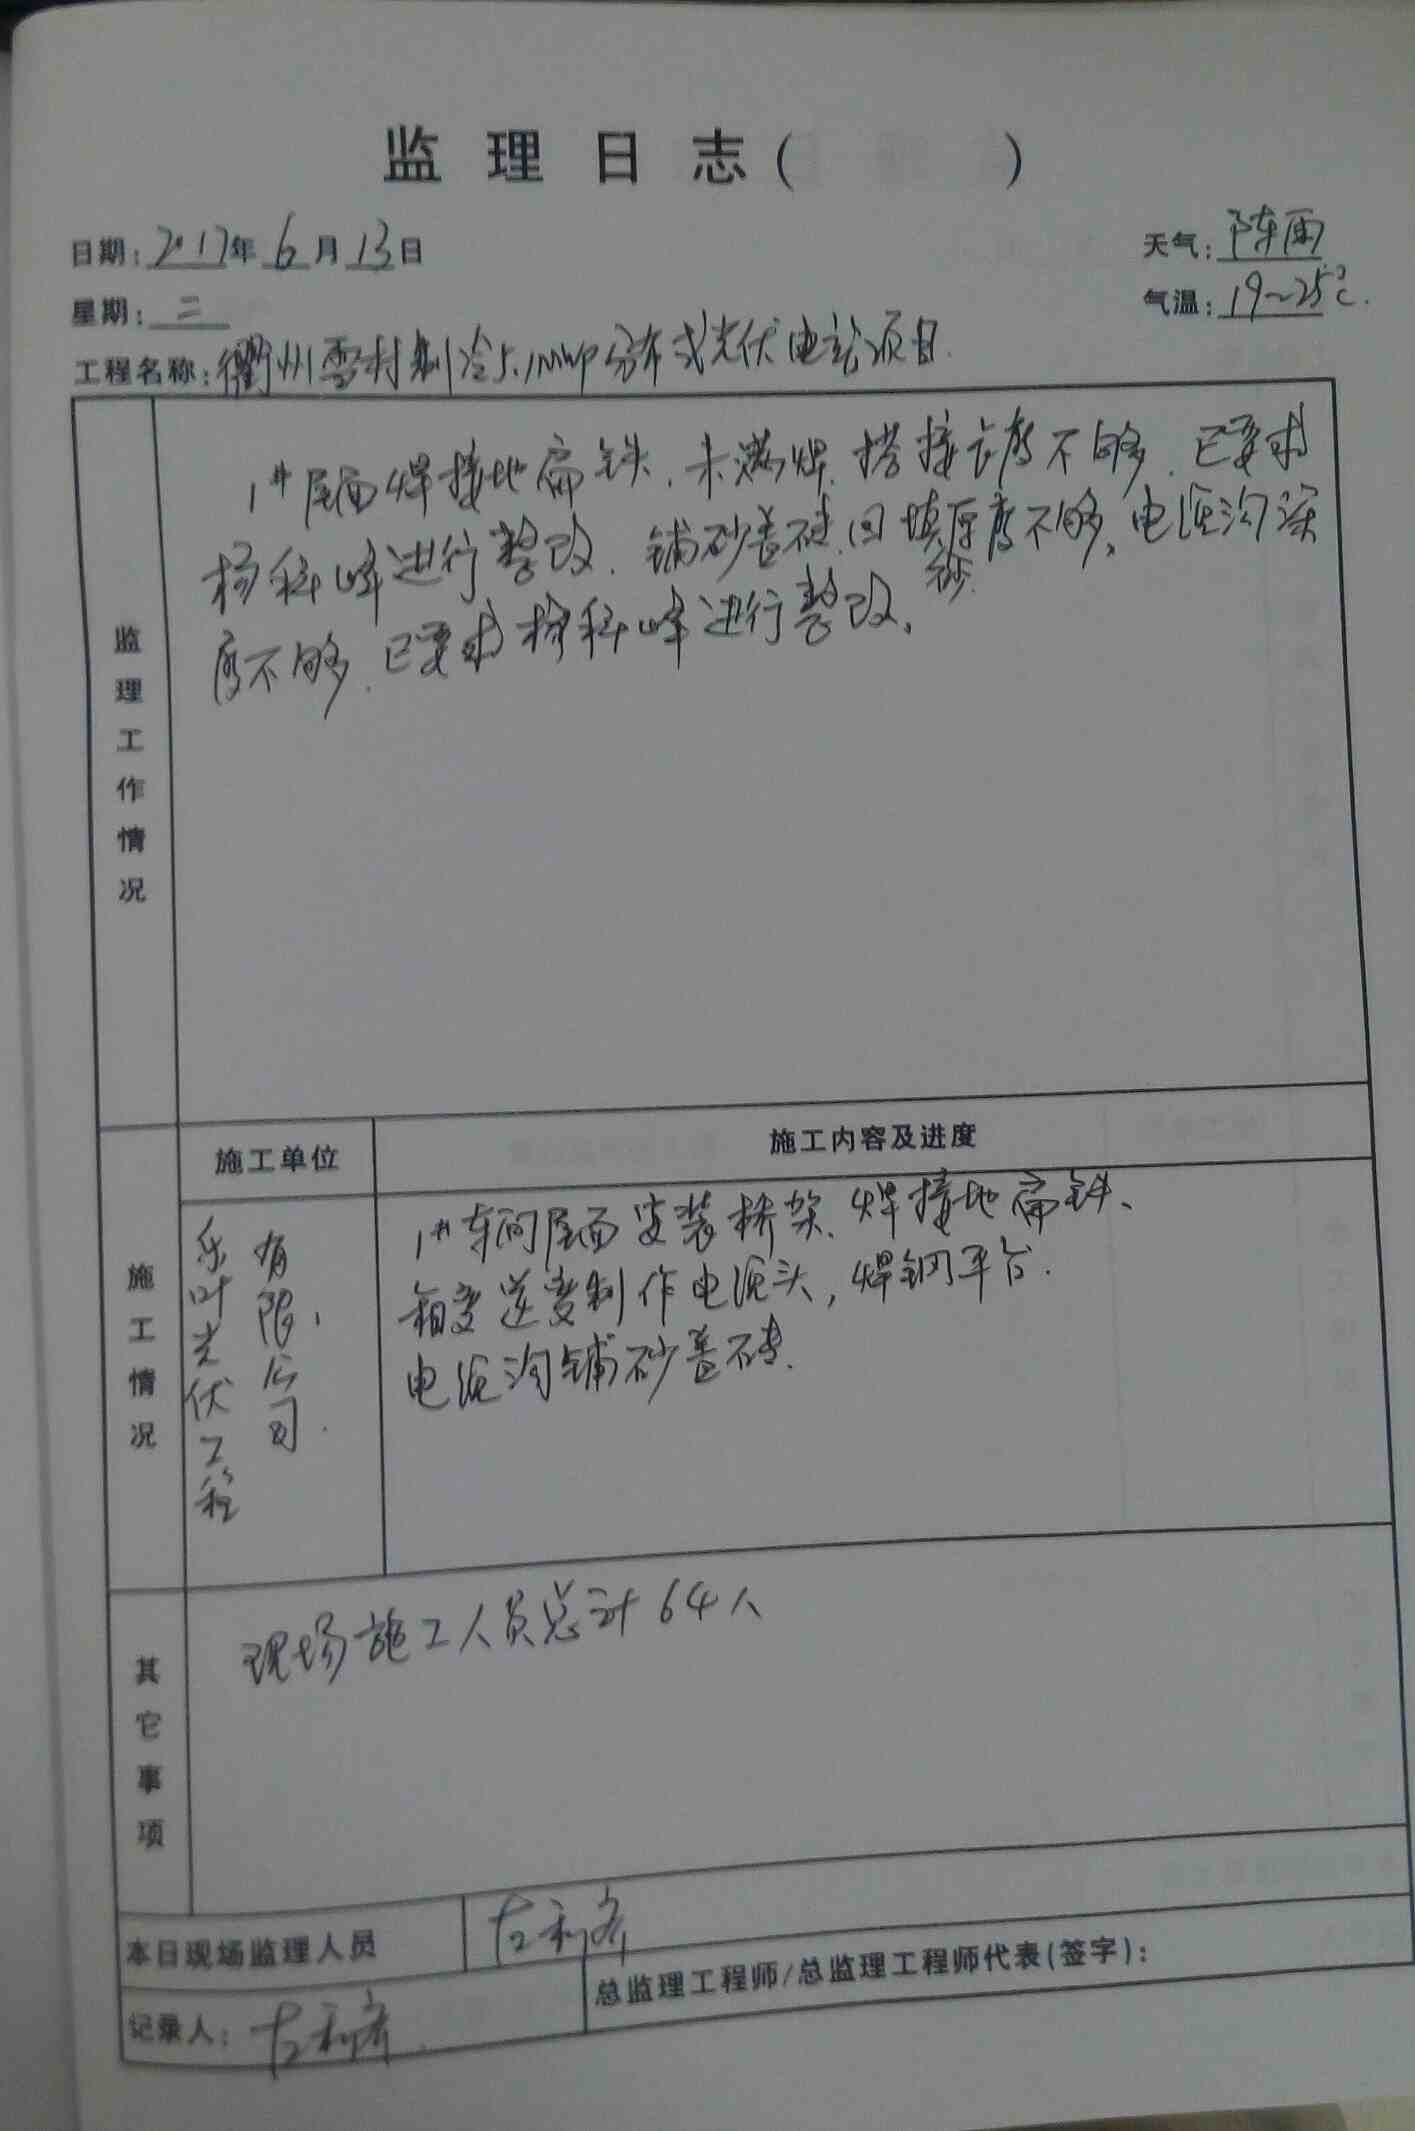 监理日志(        )
日期:2017年6月13日
天气:阵雨
星期:二
气温:19~25℃.
工程名称:衢州雪村制冷5.1MWP分布式光伏电站项目.
监理工作情况
1#屋面焊接地扁铁.未满焊.搭接长度不够.已要求
杨科峰进行整改.铺砂盖砖.回填砂厚度不够,电缆沟深
度不够.已要求杨科峰进行整改,
施工情况
施工单位
施工内容及进度
乐叶光伏工程
有限公司.
1#车间屋面安装桥架.焊接地扁铁、
箱变逆变制作电缆头,焊钢平台.
电缆沟铺砂盖砖.
其它事项
现场施工人员总计64人
本日现场监理人员
总监理工程师/总监理工程师代表(签字):
记录人: